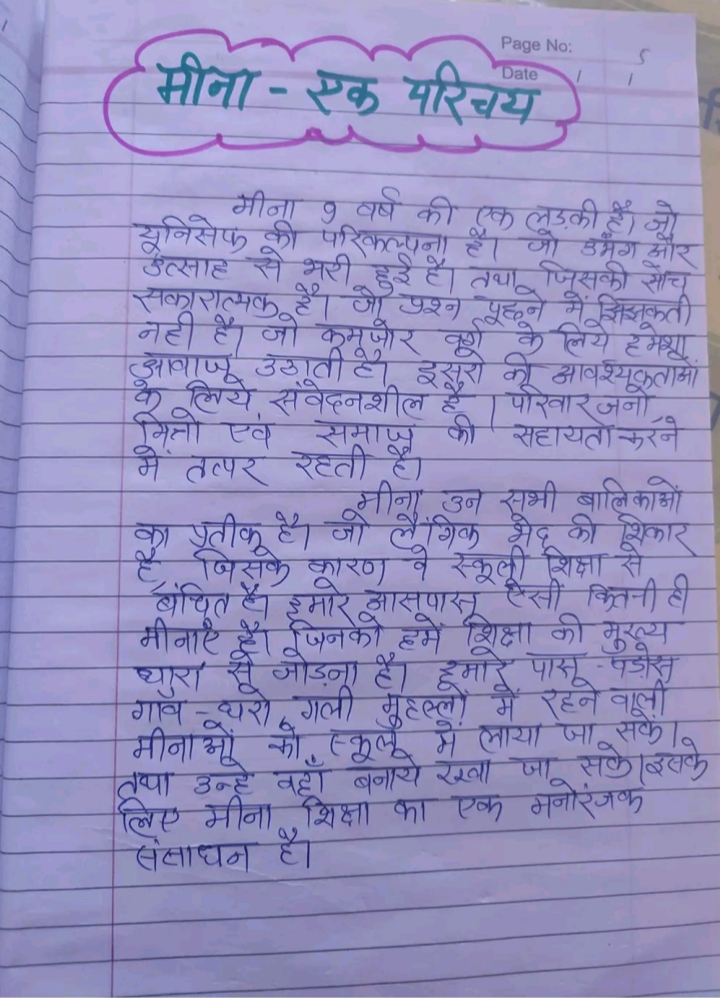 Page No:
5
Date / /
मीना - एक परिचय
मीना 9 वर्ष की एक लड़की है। जो
यूनिसेफ की परिकल्पना है। जो उमंग और
उत्साह से भरी हुई है। तथा जिसकी सोच
सकारात्मक है। जो प्रश्न पूछने में झिझकती
नही है। जो कमजोर वर्ग के लिये हमेशा
आवाज उठाती है। दूसरो की आवश्यकताओं
के लिये संवेदनशील है। परिवार जनो
मित्रो एवं समाज की सहायता करने
में तत्पर रहती है।
मीना उन सभी बालिकाओं
का प्रतीक है। जो लैंगिक भेद की शिकार
है, जिसके कारण वे स्कूली शिक्षा से
बंचित है। हमारे आसपास ऐसी कितनी ही
मीनाएँ है। जिनको हमें शिक्षा की मुख्य
धारा से जोड़ना है। हमारे पास-पडोस
गाव-घरो, गली मुहल्लों में रहने वाली
मीनाओं को स्कूल में लाया जा सके।
तथा उन्हे वहाँ बनाये रखा जा सके। इसके
लिए मीना शिक्षा का एक मनोरंजक
संसाधन है।